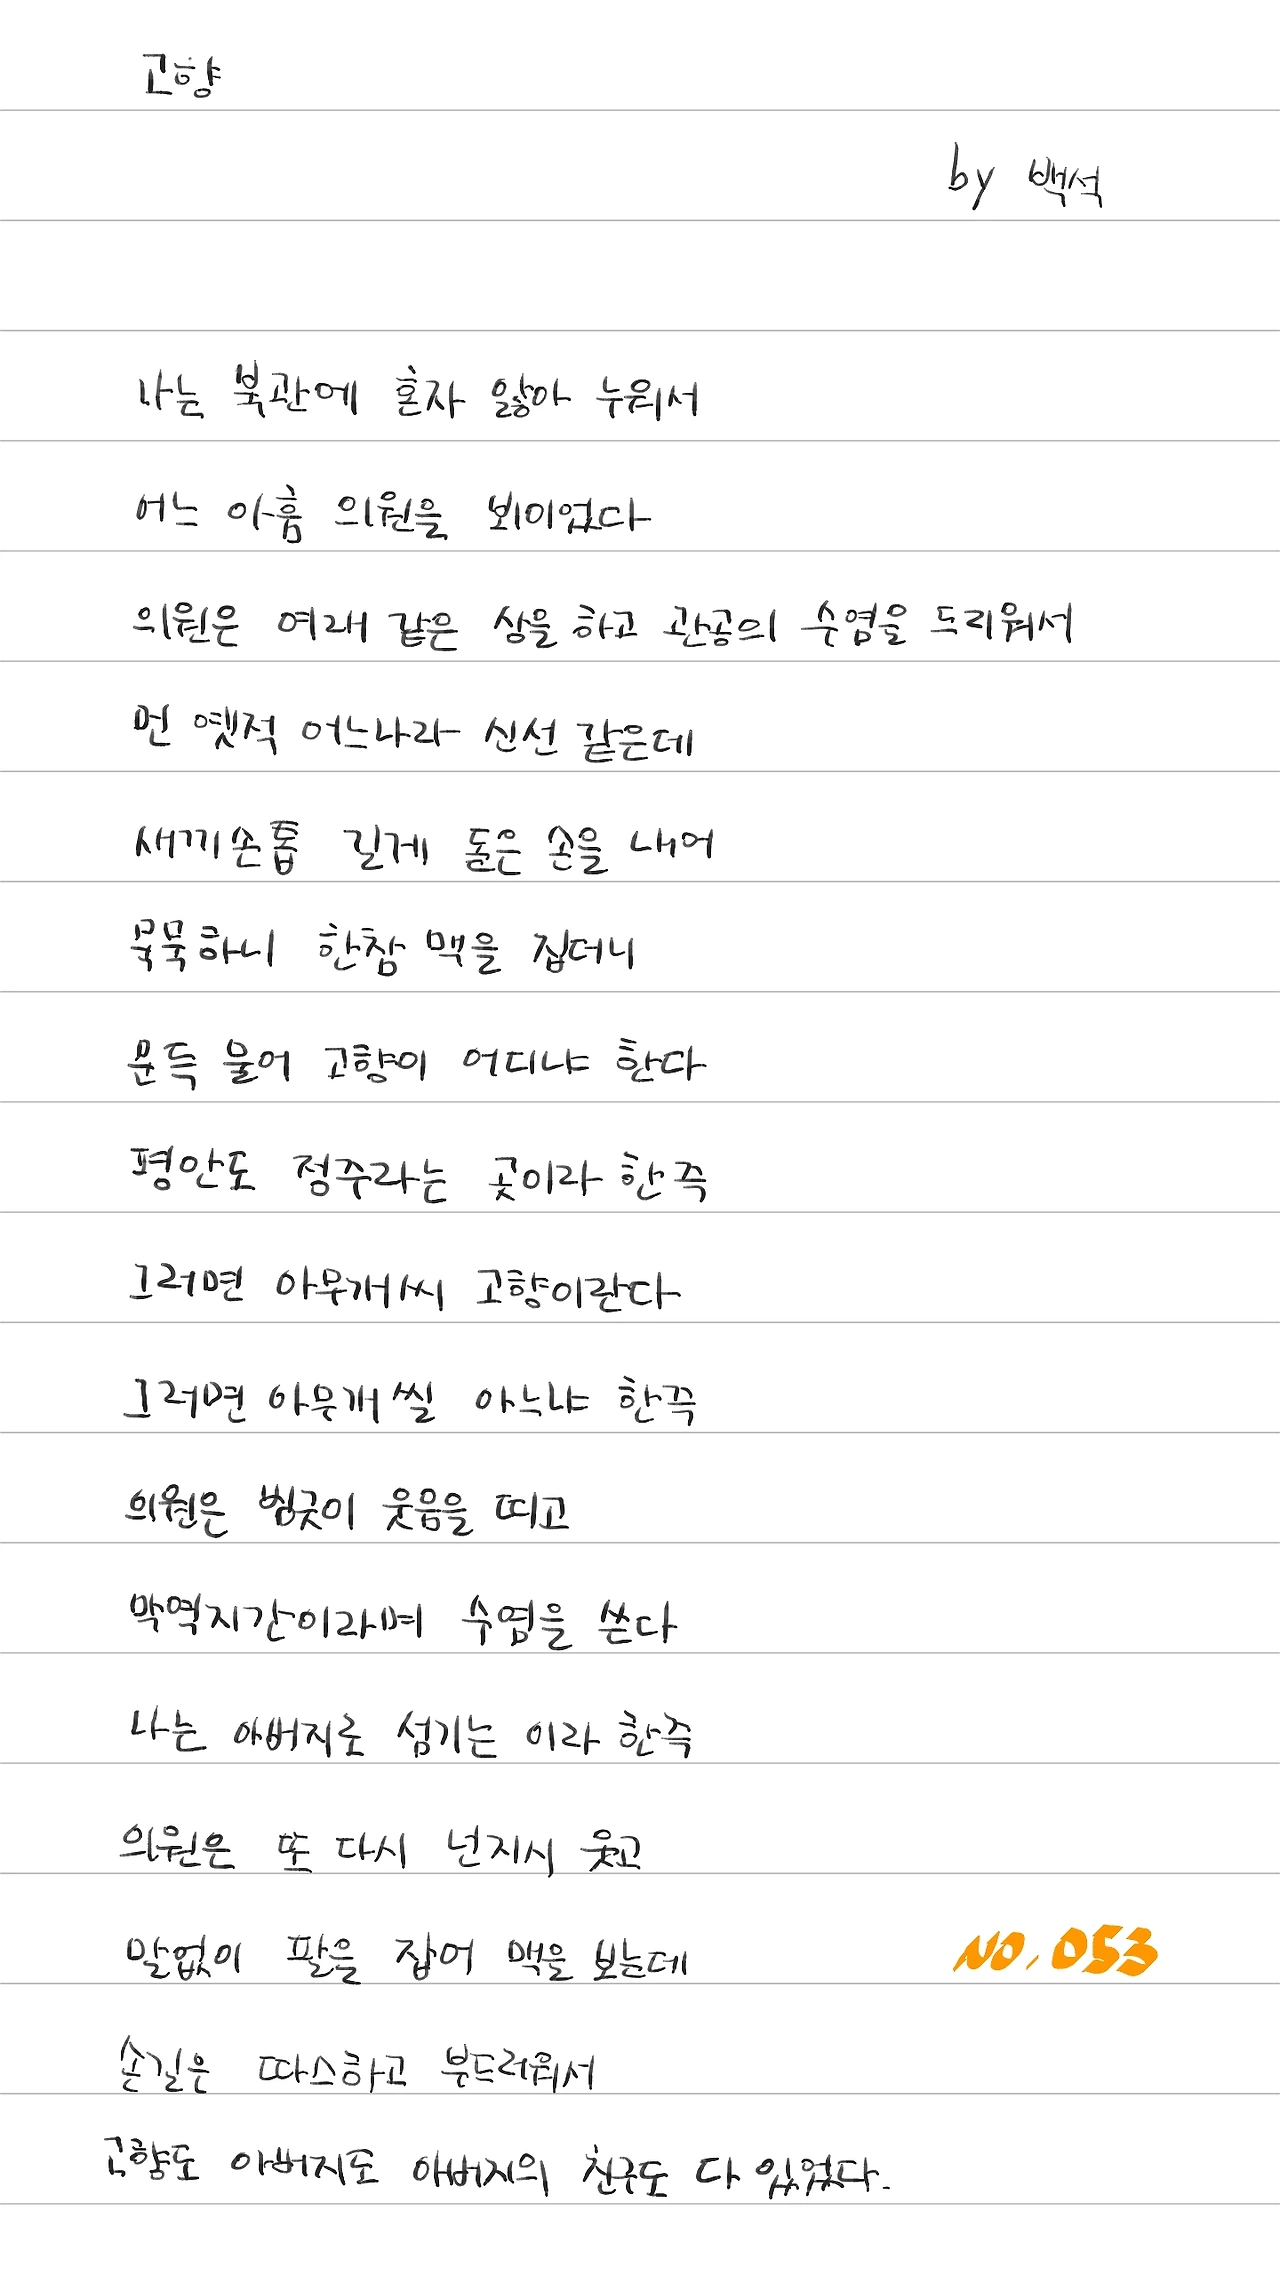 고향
by 백석
나는 북관에 혼자 앓아 누워서
어느 아흠 의원을 뵈이었다
의원은 여래 같은 상을 하고 관공의 수염을 드리워서
먼 옛적 어느나라 신선 같은데
새끼손톱 길게 돋은 손을 내어
묵묵하니 한참 맥을 집더니
문득 물어 고향이 어디냐 한다
평안도 정주라는 곳이라 한즉
그러면 아무개씨 고향이란다
그러면 아무개씰 아느냐 한즉
의원은 빙긋이 웃음을 띠고
막역지간이라며 수염을 쓴다
나는 아버지로 섬기는 이라 한즉
의원은 또 다시 넌지시 웃고
말없이 팔을 잡어 맥을 보는데
NO. 053
손길은 따스하고 부드러워서
고향도 아버지도 아버지의 친구도 다 있었다.